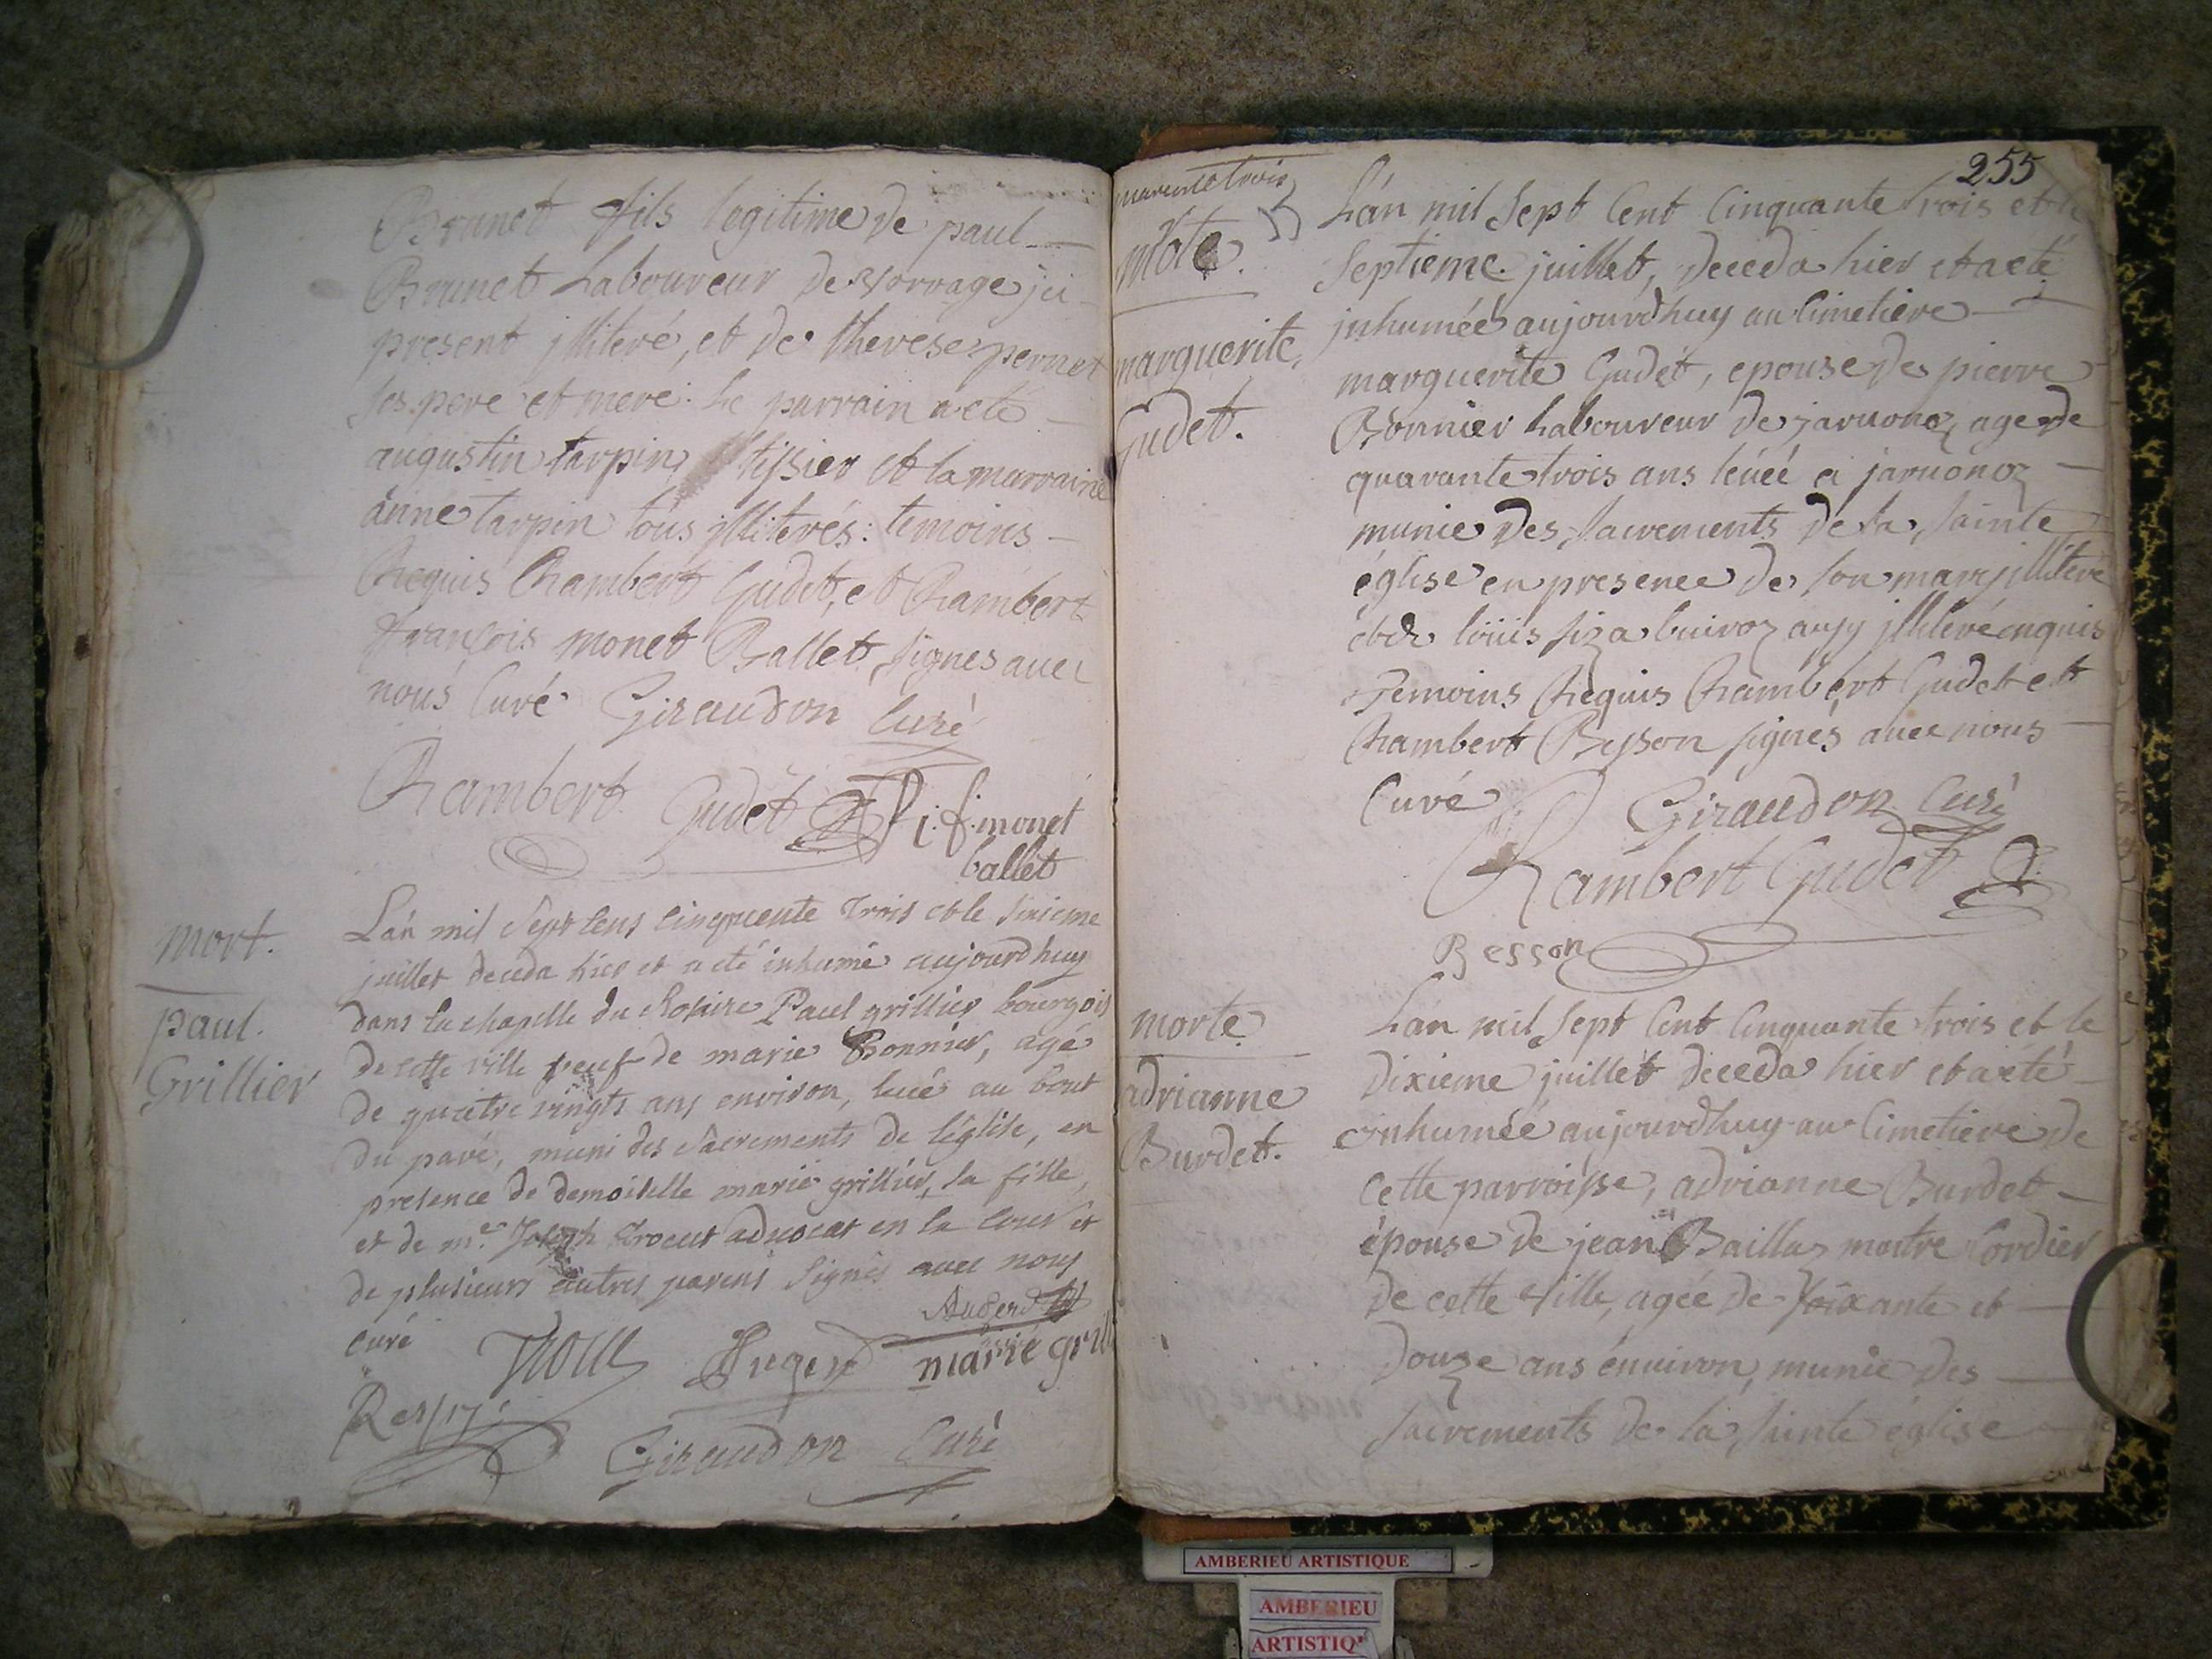 Brunet fils legitime de paul
Brunet Laboureur de Vorvage jci
present jlliteré, et de therese pernet
ses pere et mere: Le parrain a eté
augustin tarpin tissier et la marraine
anne tarpin tous jlliterés: temoins
Requis Rambert Gudet, et Rambert
françois monet Ballet, signes avec
nous Curé Giraudon Curé
Rambert Gudet j. f. monet
ballet
mort.
paul.
Grillier
L'an mil sept cens cinquente trois et le sixieme
juillet deceda hier et a eté inhumé aujourdhuy
dans la chapelle du Rosaire Paul grillier bourgois
de cette ville veuf de marie Bonnier, agé
de quatre vingts ans environ, lueé au bout
du pavé, muni des sacrements de l'église, en
presence de demoiselle marie grillier, sa fille,
et de me. Joseph trocut advocat en la cour et
de plusieurs autres parens signés avec nous
curé
Auger
marie grill
Giraudon Curé
255
quarente trois
morte.
marguerite
Gudet.
L'an mil sept Cent Cinquante trois et le
septieme juillet, deceda hier et a eté
jnhumée aujourdhuy au Cimetiere
marguerite Gudet, epouse de pierre
Bonnier Laboureur de jaruonoz, age de
quarante trois ans leüeé a jaruonoz
munie des sacrements de la sainte
église en presence de son mary jlliteré
et de loüis siza buiroz aussy jlliteré enquis
Temoins Requis Rambert Gudet et
Rambert Besson signés avec nous
Curé Giraudon Curé
Rambert Gudet
Besson
morte
adrianne
Burdet.
L'an mil sept Cent Cinquante trois et le
dixieme juillet deceda hier et a eté
inhumée aujourdhuy au Cimetiere de
Cette parroisse, adrianne Burdet
épouse de jean Baillaz maitre Cordier
de cette ville, agée de soixante et
douze ans énuiron, munie des
sacrements de la sainte église
AMBERIEU ARTISTIQUE
AMBERIEU
ARTISTIQ